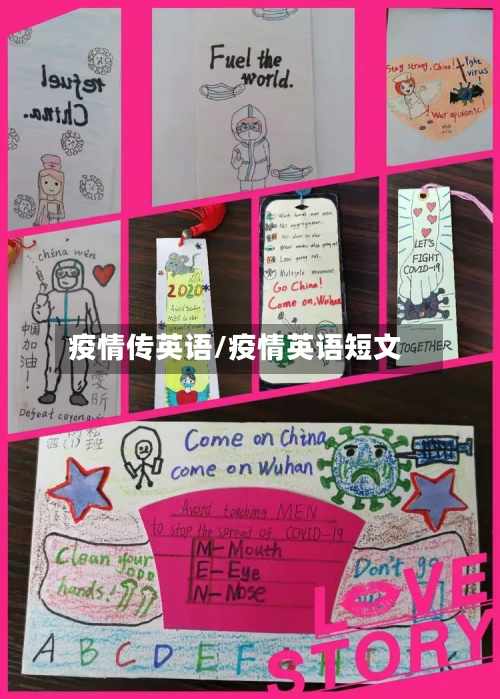 refuel
China.
Fuel the
world.
Stay strong, China!
fight
virus!
War epidemic!
china win
中国加油!
2020
Avoid touching
MEN to stop the
spread of
Wash hands more often.
NO aggregation.
Wear masks when going out.
Less going out.
Multiple movement
Go China!
Come on, Wuhan
LET'S
FIGHT
COVID-19
TOGETHER
疫情传英语/疫情英语短文
Come on China
come on Wuhan
Avord touching MEN
to stop the spread of COVID-19
M-Mouth
E-Eye
N-Nose
Clean your
hands!
Don't go
A B C D E F
LOVE
STORY